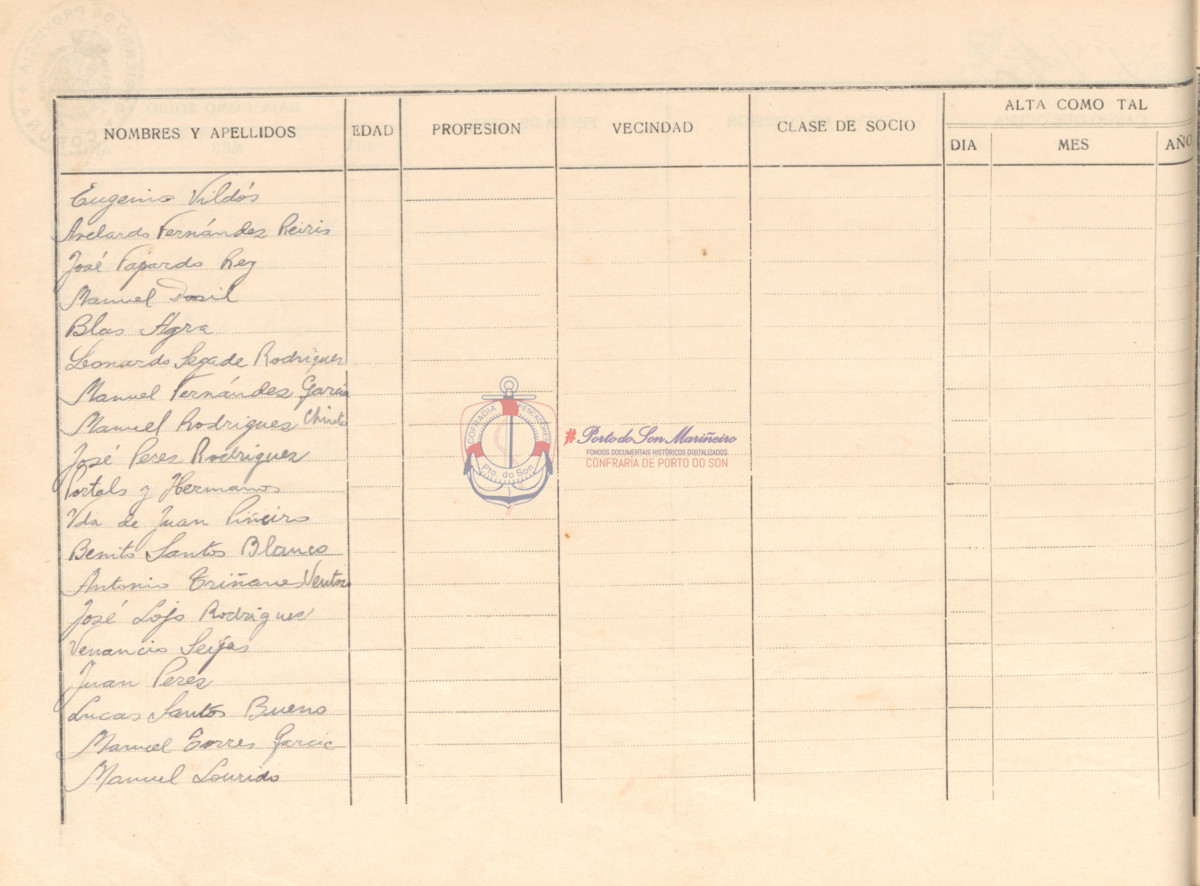 ALTA COMO TAL
NOMBRES Y APELLIDOS EDAD PROFESION VECINDAD CLASE DE SOCIO DIA MES AÑO
Eugenio Vildós
Avelardo Fernández Reiris
José Fajardo Rey
Manuel Dosil
Blas Agra
Leonardo Segade Rodriguez
Manuel Fernández Garcia
Manuel Rodrigues
José Peres Rodriguez
Portals y Hermanos
Vda de Juan Piñeiro
Benito Santos Blanco
Antonio Triñanes Ventoso
José Lojo Rodriguez
Venancio Seijas
Juan Peres
Lucas Santos Bueno
Manuel Torres Garcia
Manuel Lourido
COFRADIA PESCADORES
Pto. do Son
# Porto do Son Mariñeiro
FONDOS DOCUMENTAIS HISTÓRICOS DIGITALIZADOS
CONFRARÍA DE PORTO DO SON